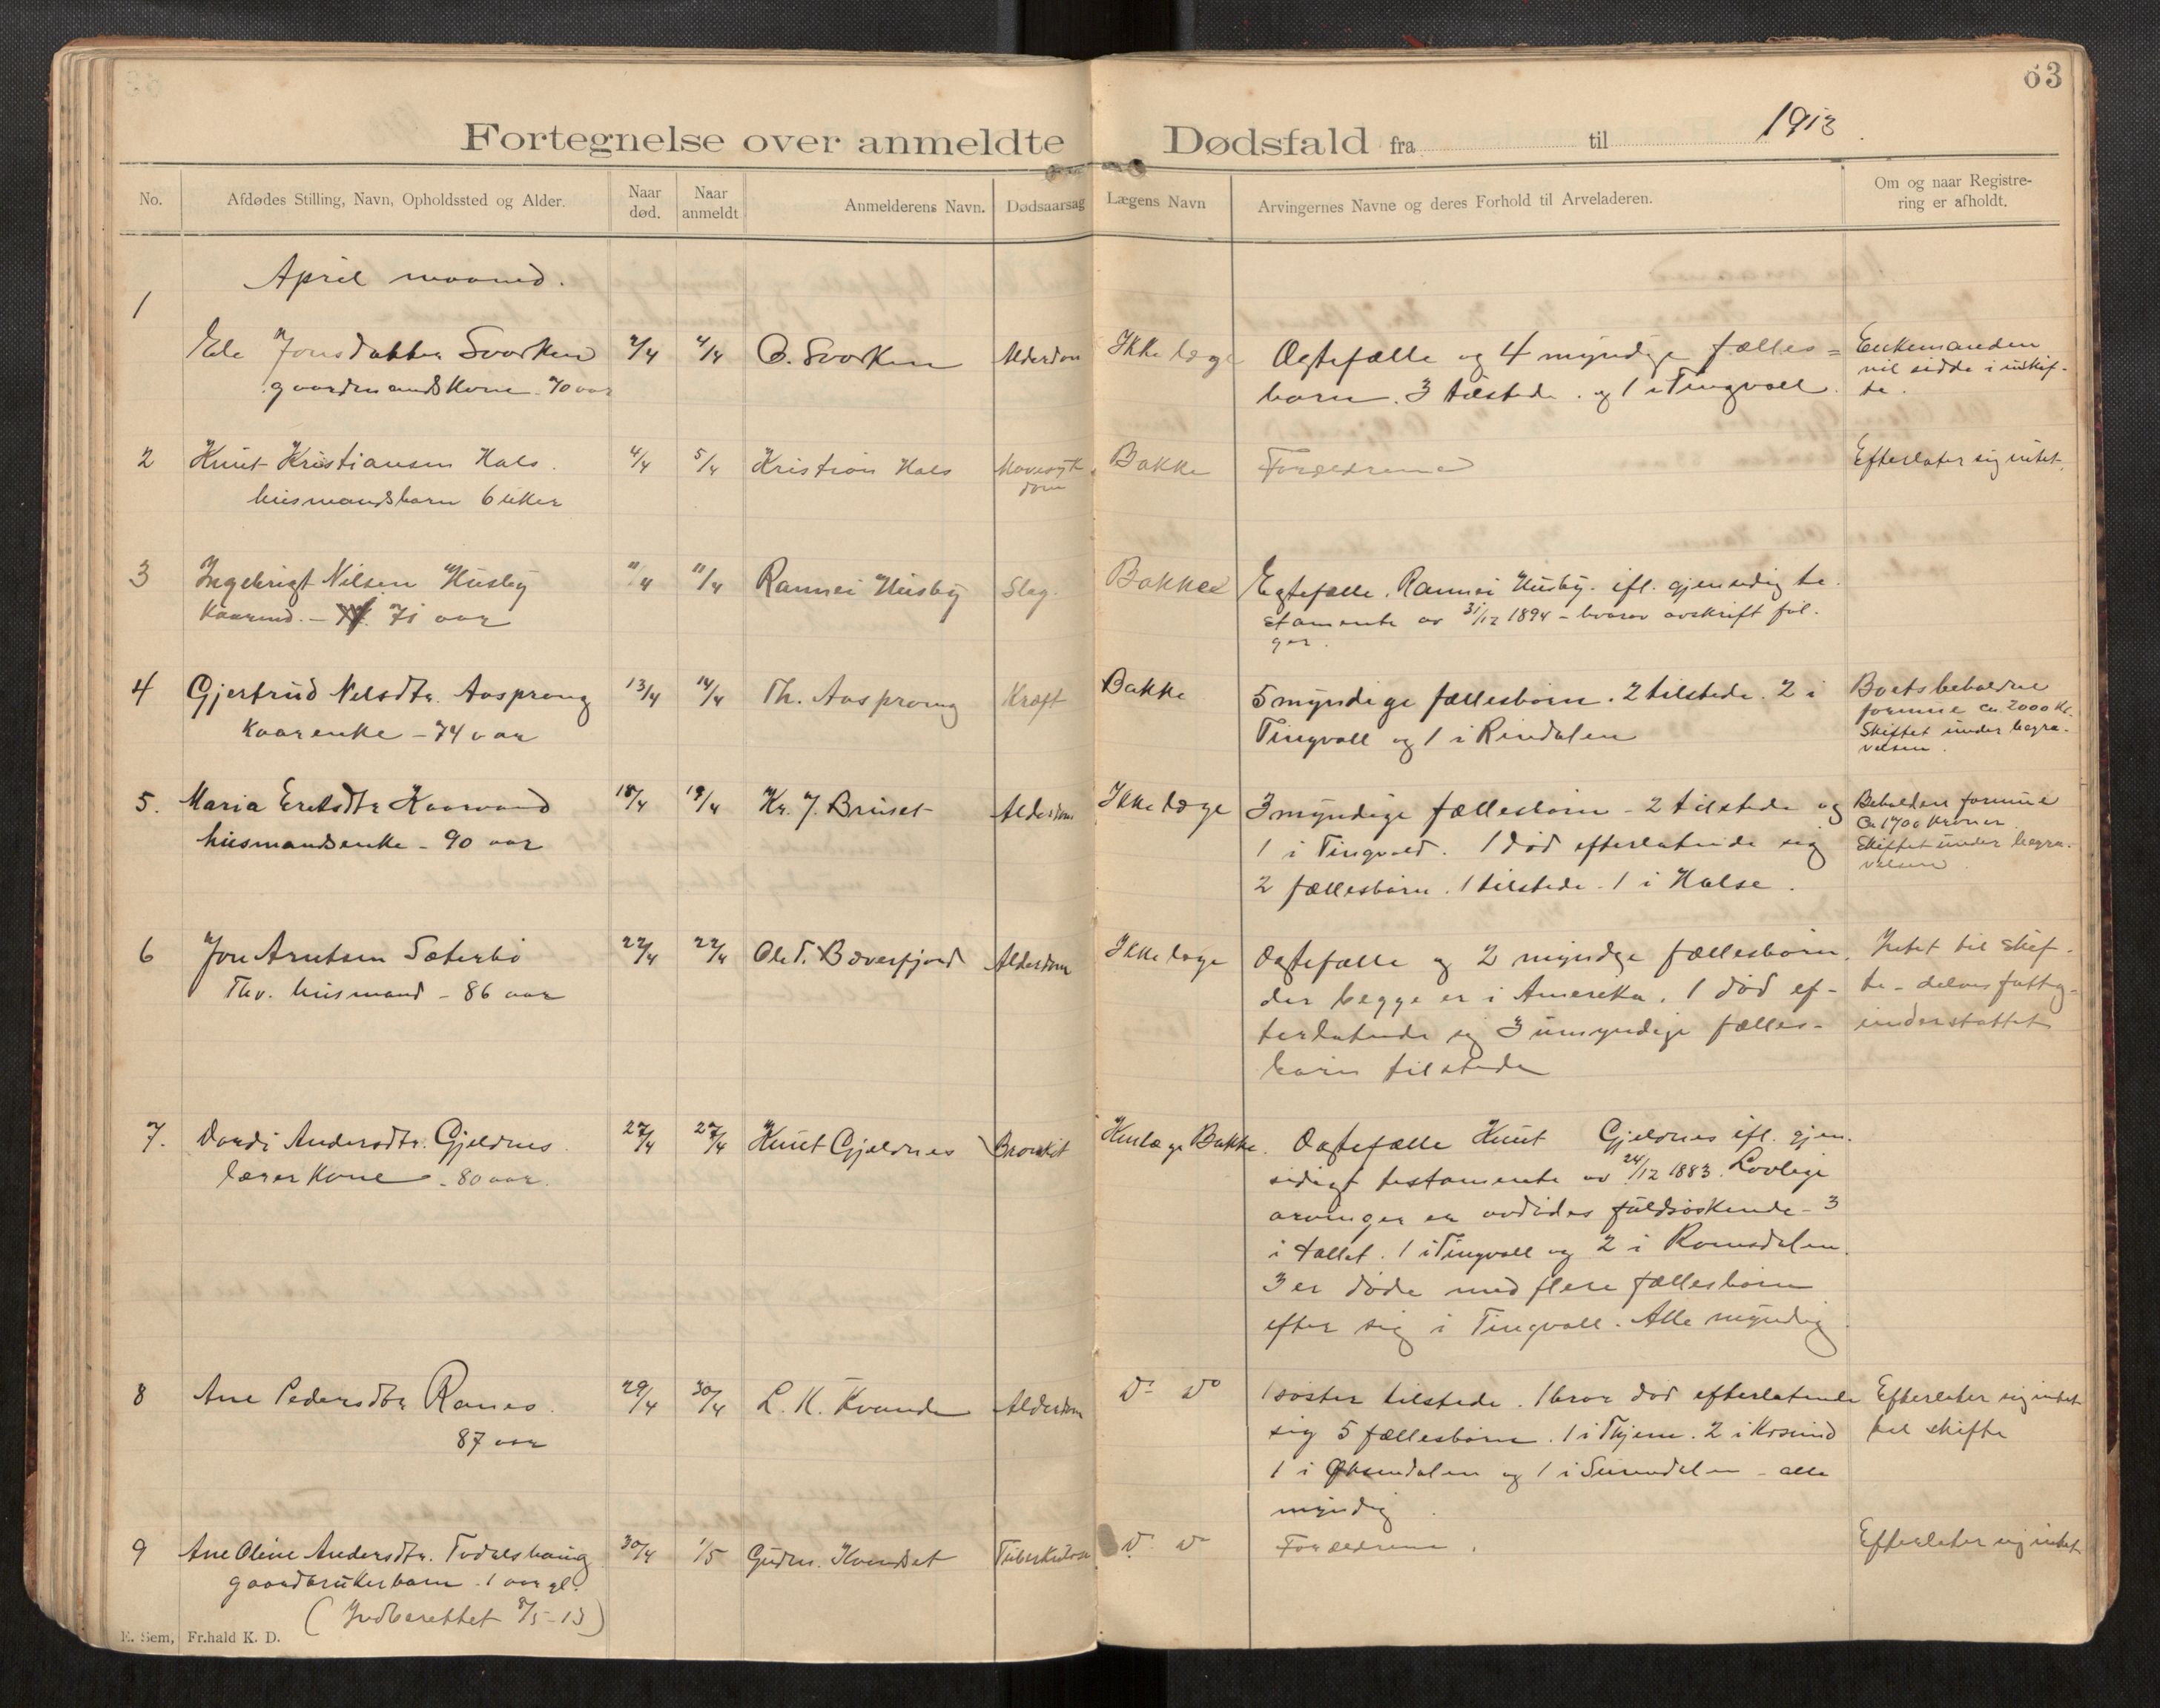 63
Fortegnelse over anmeldte Dødsfald fra til 1913.
No.
Afdødes Stilling, Navn, Opholdssted og Alder.
Naar død.
Naar anmeldt
Anmelderens Navn.
Dødsaarsag
Lægens Navn
Arvingernes Navne og deres Forhold til Arveladeren.
Om og naar Registre-
ring er afholdt.
April maaned.
1
Ele Jonsdatter Svorken 2/4 4/4 O. Svorken Alderdom Ikke læge Ægtefælle og 4 myndige fælles= Enkemanden
gaardmandskone. 70 aar børn. 3 tilstede. og 1 i Tingvoll. vil sidde i uskif-
te.
2 Knut Kristiansen Hals. 4/4 5/4 Kristian Hals Mavesyk- Bakke Forældrene Efterlater sig intet.
husmandsbarn 6 uker dom
3 Ingebrigt Nilsen Husby 11/4 11/4 Rannei Husby Slag. Bakke Egtefælle. Rannei Husby. ifl. gjensidig te
Kaarmd. - 71 aar stamente av 31/12 1894 - hvorav avskrift føl-
ger.
4 Gjertrud Nelsdtr. Aasprong 13/4 14/4 Th. Aasprong Kræft Bakke 5 myndige fællesbørn. 2 tilstede. 2 i Boets beholdne
Kaarenke - 74 aar Tingvoll og 1 i Rindalen formue ca. 2000 Kr.
Skiftet under begra-
velsen.
5. Maria Eriksdtr Kaarvand 18/4 19/4 Kr. J. Bruset Alderdom Ikke læge 3 myndige fællesbørn - 2 tilstede og Beholden formue
husmandsenke - 90 aar 1 i Tingvold. 1 død efterlatende sig Ca 1700 kroner.
2 fællesbørn. 1 tilstede. 1 i Halse. Skiftet under begra-
velsen
6 Jon Arntsen Sæterbø 22/4 22/4 Ole T. Bæverfjord Alderdom Ikke læge Ægtefælle og 2 myndige fællesbørn. Intet til skif-
Fhv. husmand - 86 aar der begge er i Amerika. 1 død ef- te - delvis fattig-
terlatende sig 3 umyndige fælles- understøttet
børn tilstede
7. Dordi Andersdtr. Gjeldnes. 27/4 27/4 Knut Gjeldnes Bronkit Hrr læge Bakke. Ægtefælle Knut Gjeldnes ifl. gjen-
lærerkone - 80 aar. sidigt testamente av 24/12 1883. Lovlige
arvinger er avdødes fuldsøskende - 3
i tallet. 1 i Tingvoll og 2 i Romsdalen.
3 er døde med flere fællesbørn
efter sig i Tingvoll. Alle myndig.
8 Ane Pedersdtr Ranes. 29/4 30/4 L. K. Kvande Alderdom Do Do 1 søster tilstede. 1 bror død efterlatende Efterlater sig intet
87 aar sig 5 fællesbørn. 1 i Thjem. 2 i Krsund til skifte
1 i Øksendalen og 1 i Surendalen - alle
myndig.
9 Ane Oline Andersdtr. Todalshaug 30/4 1/5 Gudm. Kvendset Tuberkulose Do Do Forældrene. Efterlater sig intet
gaardbrukerbarn. 1 aar gl.
(Indberettet 8/5-13)
E. Sem, Fr.hald K. D.